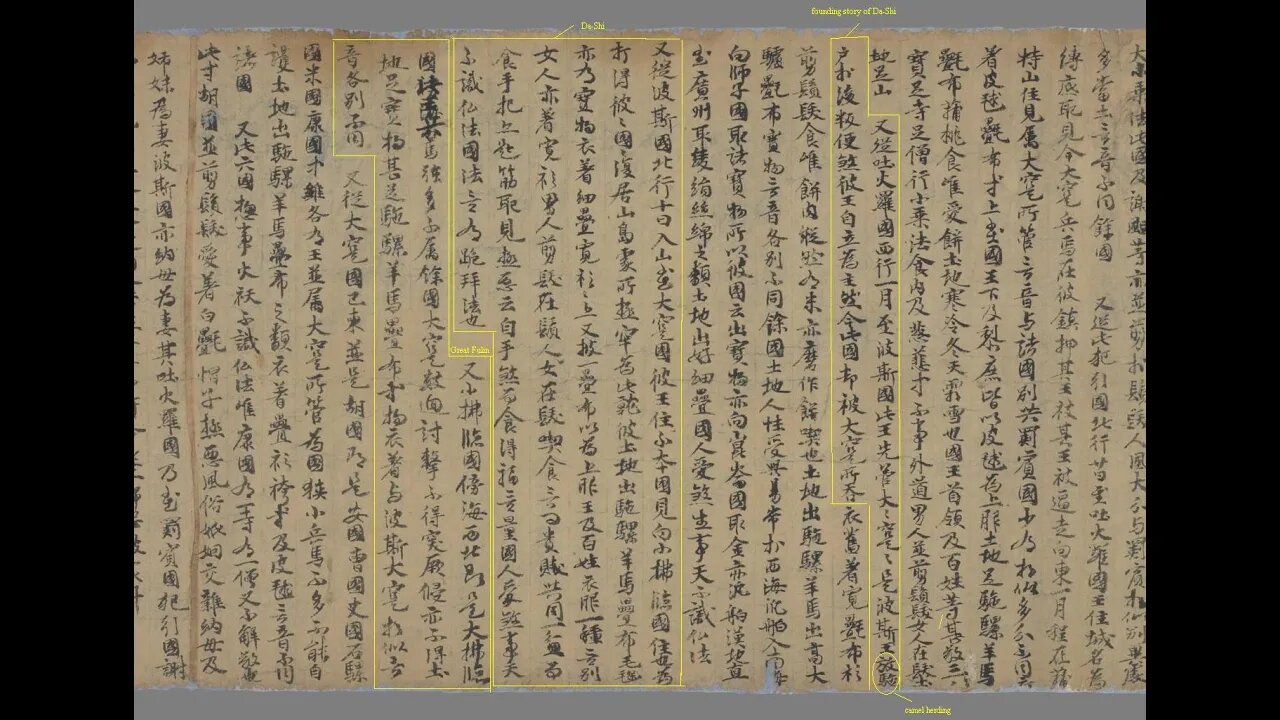 founding story of Da-Shi
Da-Shi
大小乘法此國及謝䫻等亦並剪於鬚髮人風大分与罽賓相似別異處
多當土言音不同餘國 又從此犯引國北行廿日至吐火羅國王住城名為
縛底耶見今大寔兵馬在彼鎮押其王被其王被逼走向東一月程在蒲
特山住見屬大寔所管言音与諸國別共罽賓國少有相似多分不同衣
著皮毬氎布等上至國王下及黎庶皆以皮毬為上服土地足駝騾羊馬
氎布蒲桃食唯愛餅土地寒冷冬天霜雪也國王首領及百姓等甚敬三
寶足寺足僧行小乘法食肉及葱韮等不事外道男人並剪鬚髮女人在髮
地足山 又從吐火羅國西行一月至波斯國此王先管大寔大寔是波斯王放駝
戶於後叛便煞彼王自立為主然今此國却被大寔所吞衣舊著寬氎布衫
剪鬚髮食唯餅肉縱然有米亦磨作餅喫也土地出駝騾羊馬出高大
驢氎布寶物言音各別不同餘國土地人性受與易常於西海汎舶入南海
向師子國取諸寶物所以彼國云出寶物亦向崑崙國取金亦汎舶漢地直
至廣州取綾絹絲綿之類土地出好細疊國人愛煞生事天不識仏法
又從波斯國北行十日入山至大寔國彼王住不本國見向小拂臨國住也為
打得彼國彼國復居山島處所極牢為此就彼土地出駝騾羊馬疊布毛毯
亦有寶物衣著細疊寬衫衫上又披一疊布以為上服王及百姓衣服一種無別
女人亦著寬衫男人剪髮在鬚女人在髮喫食無問貴賤共同一盆而
食手把亦匙筋取見極惡云自手煞而食得福無量國人愛煞事天
不識仏法國法無有跪拜法也 又小拂臨國傍海西北即是大拂臨
Great Fulin
國此王兵馬強多不屬餘國大寔數迴討擊不得突厥侵亦不得土
地足寶物甚足駝騾羊馬疊布等物衣著与波斯大寔相似言
音各別不同 又從大寔國已東並是胡國即是安國曹國史國石騾
國米國康國中雖各有王並屬大寔所管為國狹小兵馬不多不能自
護土地出駝騾羊馬疊布之類衣著疊衫袴等及皮毬言音不同
諸國 又此六國惣事火祆不識仏法唯康國有一寺有一僧又不解敬也
此等胡國並剪鬚髮愛著白氎帽子極惡風俗婚姻交雜納母及
姊妹為妻波斯國亦納母為妻其吐火羅國乃至罽賓國犯引國謝
camel herding